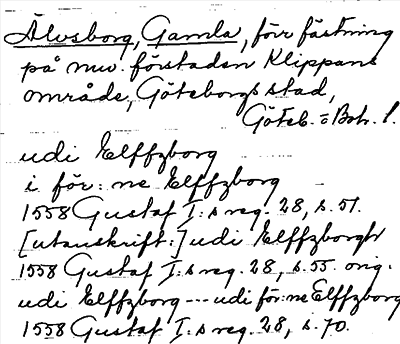 Älvsborg, Gamla, förr fästning
på nuv. förstaden Klippans
område, Göteborgs stad,
Göteb. o Boh. l.
udi Elffzborg
i för: ne Elffzborg
1558 Gustaf I:s reg. 28, s. 51.
[utanskrift:] udi Elffzborgh
1558 Gustaf I:s reg. 28, s. 55. orig.
udi Elffzborg --- udi för: ne Elffzborg
1558 Gustaf I:s reg. 28, s. 70.